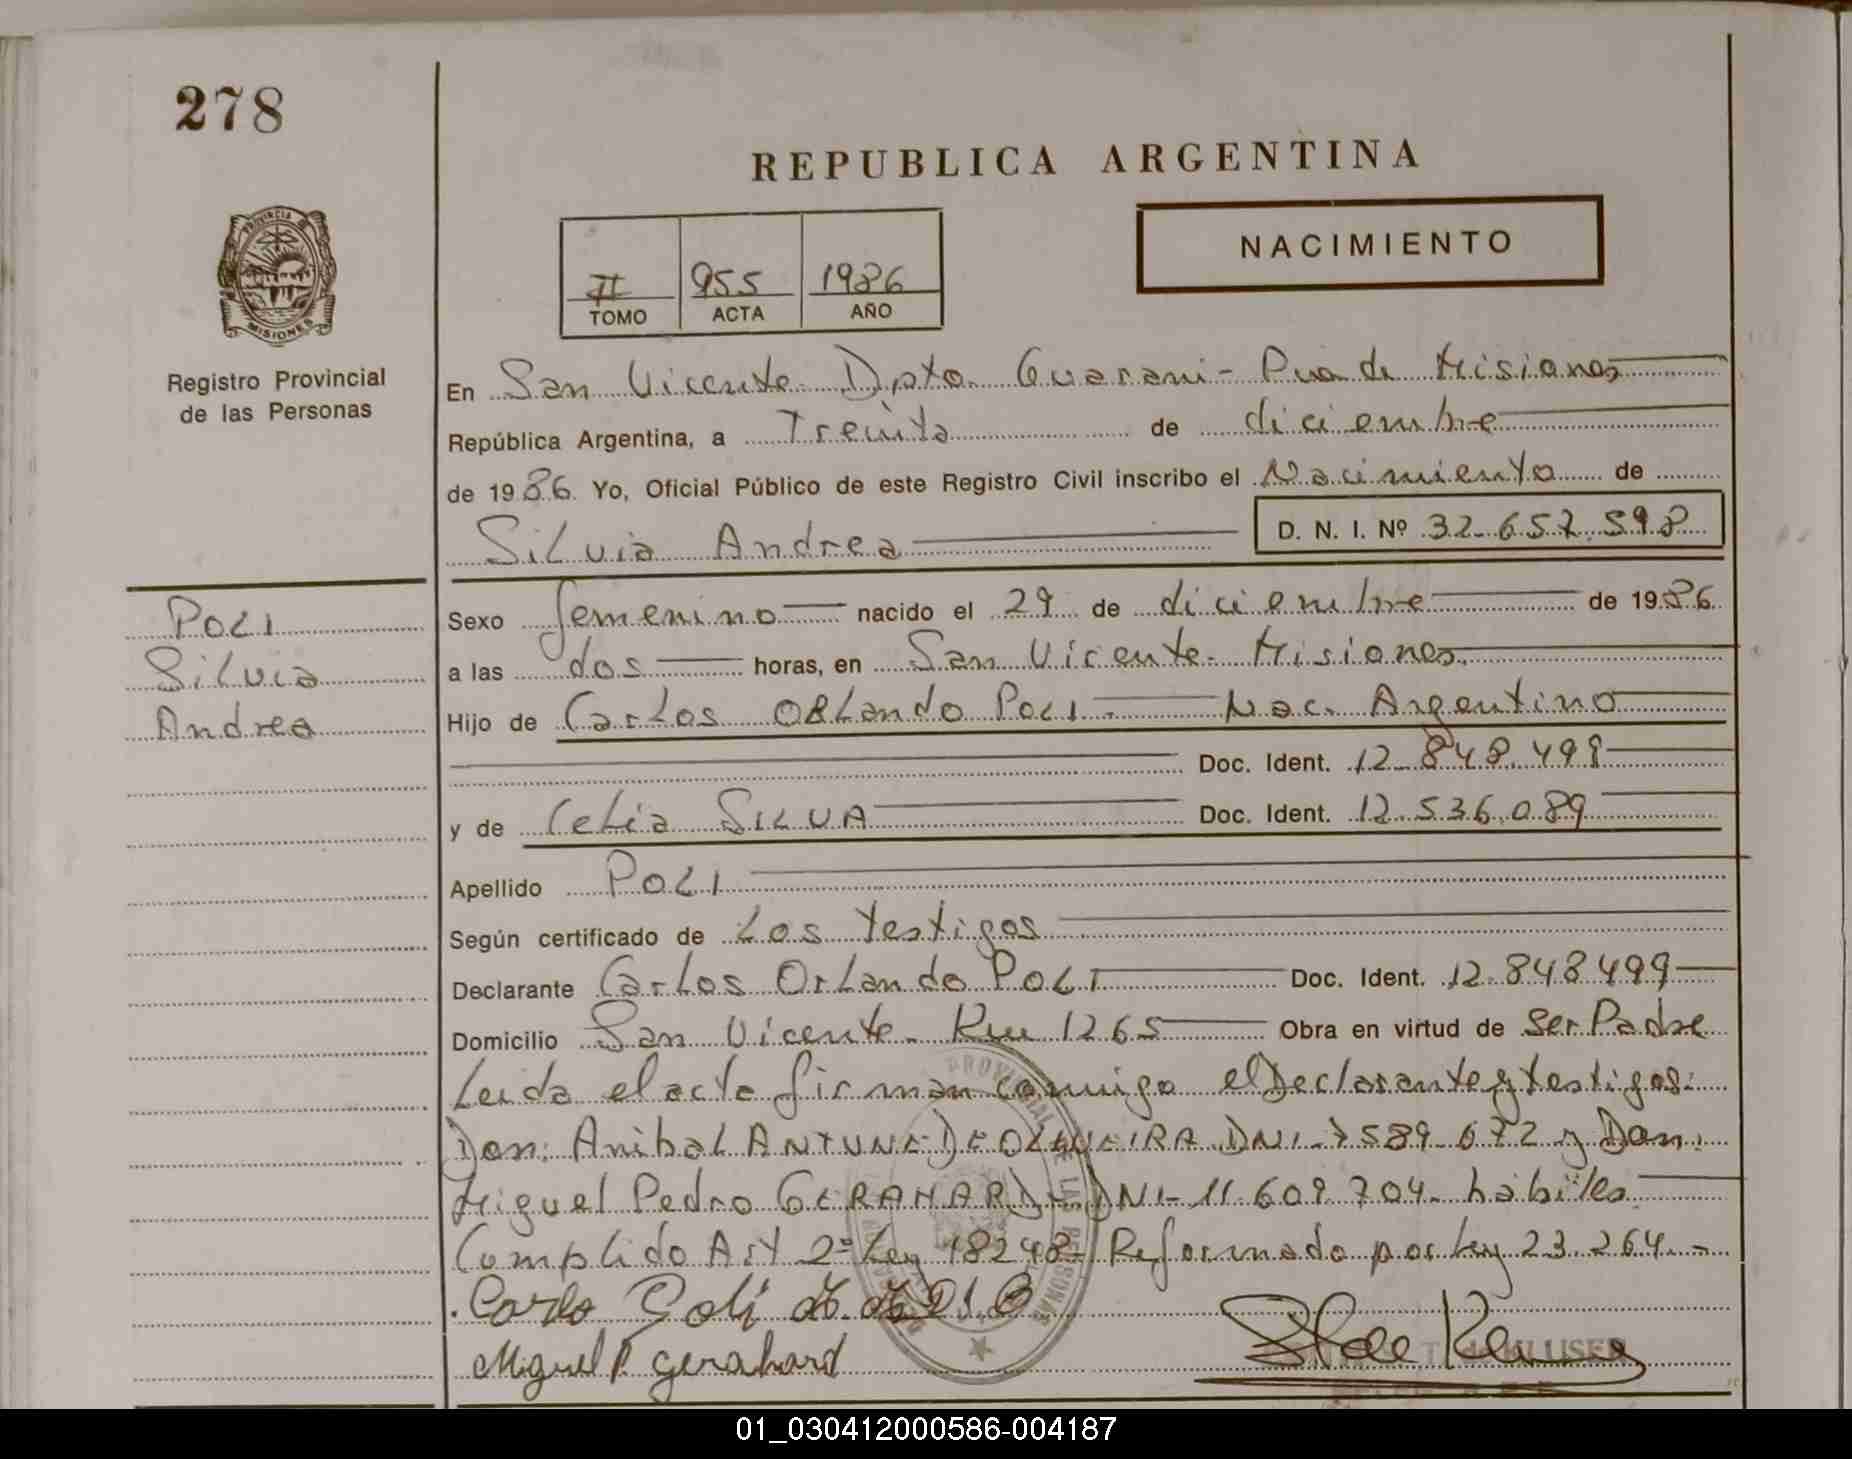 278
REPUBLICA ARGENTINA
NACIMIENTO
II 955 1986
TOMO ACTA AÑO
PROVINCIA DE
MISIONES
Registro Provincial
de las Personas
En San Vicente Dpto Guarani - Pcia de Misiones
República Argentina, a Treinta de diciembre
de 1986 Yo, Oficial Público de este Registro Civil inscribo el Nacimiento de
Silvia Andrea D. N. I. Nº 32.657.598
POLI
Silvia
Andrea
Sexo femenino nacido el 29 de diciembre de 1986
a las dos horas, en San Vicente - Misiones
Hijo de Carlos ORLando POLI - Nac. Argentino
Doc. Ident. 12.848.499
y de Celia SILVA Doc. Ident. 12.536.089
Apellido POLI
Según certificado de Los testigos
Declarante Carlos Orlando POLI Doc. Ident. 12.848.499
Domicilio San Vicente - Km 1265 Obra en virtud de Ser Padre
Leida el acta firman conmigo el Declarante y testigos:
Don: Anibal ANTUNE DE OLIVEIRA DNI - 7589.672 y Don:
Miguel Pedro GERAHARD - DNI - 11.609.704 - habiles
Complido Art 2º Ley 18248 - Reformado por Ley 23.264. -
Carlo Poli
Miguel P. Gerahard
01_030412000586-004187